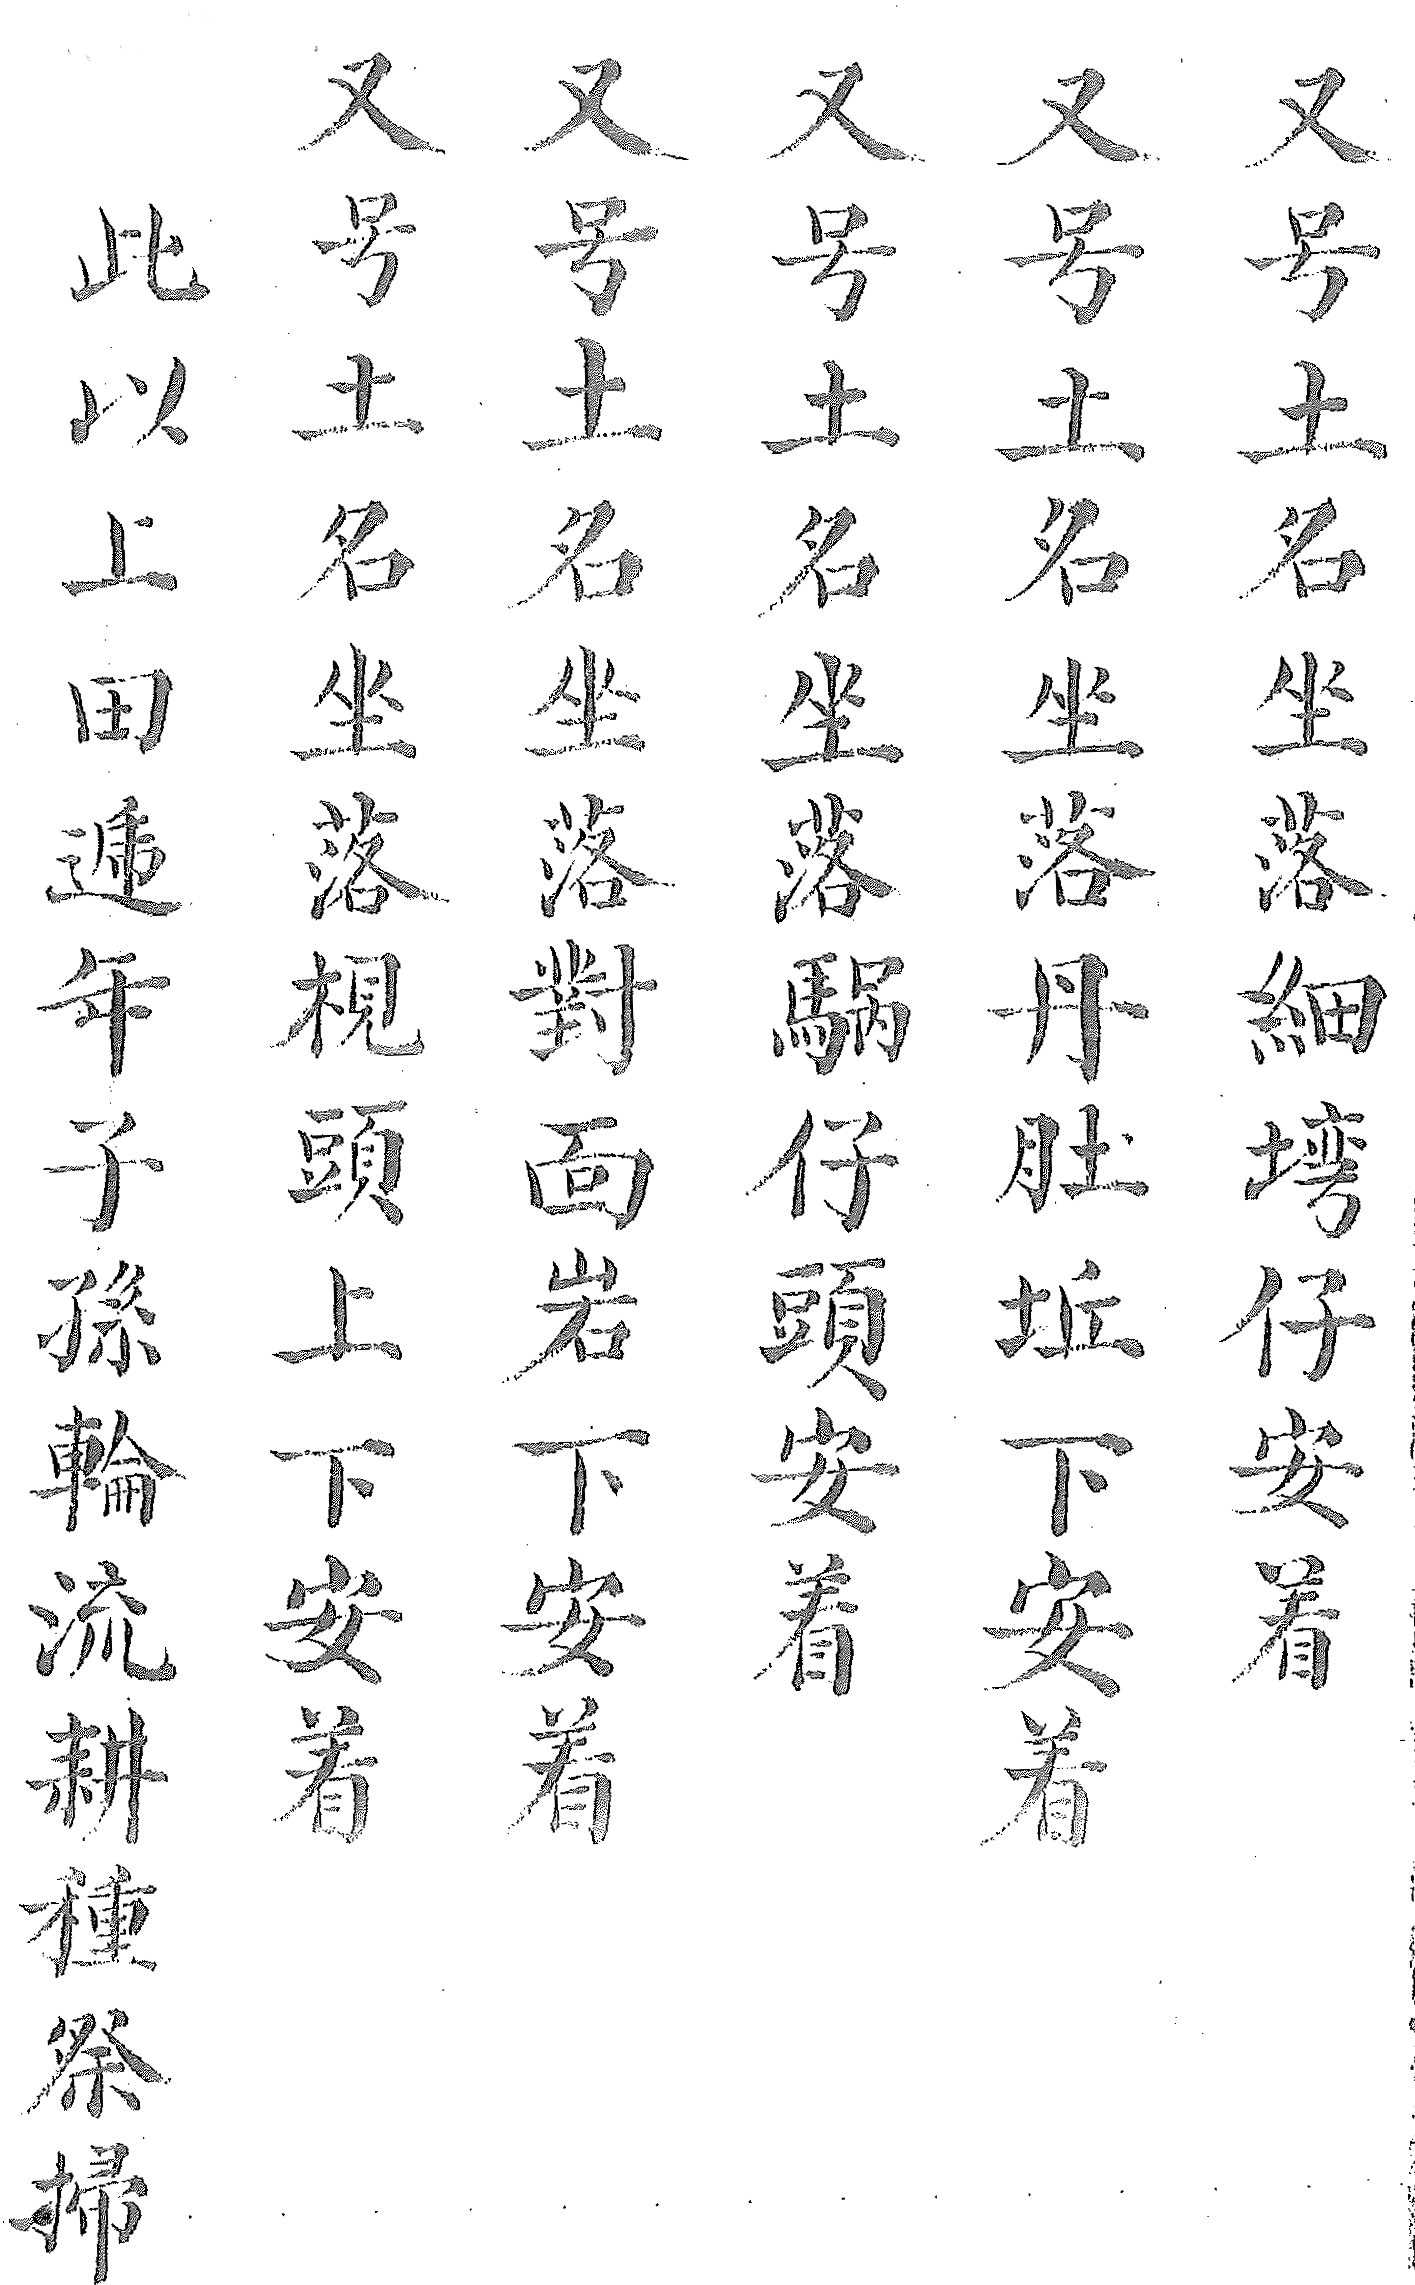 又号土名坐落細塆仔安着
又号土名坐落丹肚坵下安着
又号土名坐落騧仔頭安着
又号土名坐落對面岩下安着
又号土名坐落梘頭上下安着
此以上田遞年子孫輪流耕種祭掃